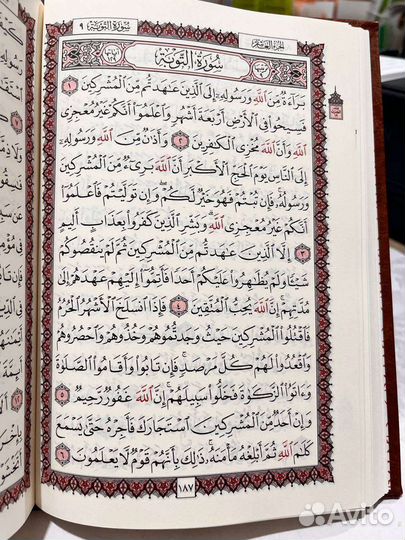 سورة التوبة ٩
الجزء العاشر
سورة التوبة
براءة من الله ورسوله إلى الذين عاهدتم من المشركين ١
فسيحوا في الأرض أربعة أشهر واعلموا أنكم غير معجزي
الله وأن الله مخزي الكافرين ٢ وأذان من الله ورسوله
إلى الناس يوم الحج الأكبر أن الله بريء من المشركين
ورسوله فإن تبتم فهو خير لكم وإن توليتم فاعلموا
أنكم غير معجزي الله وبشر الذين كفروا بعذاب أليم
٣ إلا الذين عاهدتم من المشركين ثم لم ينقصوكم
شيئا ولم يظاهروا عليكم أحدا فأتموا إليهم عهدهم إلى
مدتهم إن الله يحب المتقين ٤ فإذا انسلخ الأشهر الحرم
فاقتلوا المشركين حيث وجدتموهم وخذوهم واحصروهم
واقعدوا لهم كل مرصد فإن تابوا وأقاموا الصلاة
وآتوا الزكاة فخلوا سبيلهم إن الله غفور رحيم ٥
وإن أحد من المشركين استجارك فأجره حتى يسمع
كلام الله ثم أبلغه مأمنه ذلك بأنهم قوم لا يعلمون ٦
١٨٧
Avito